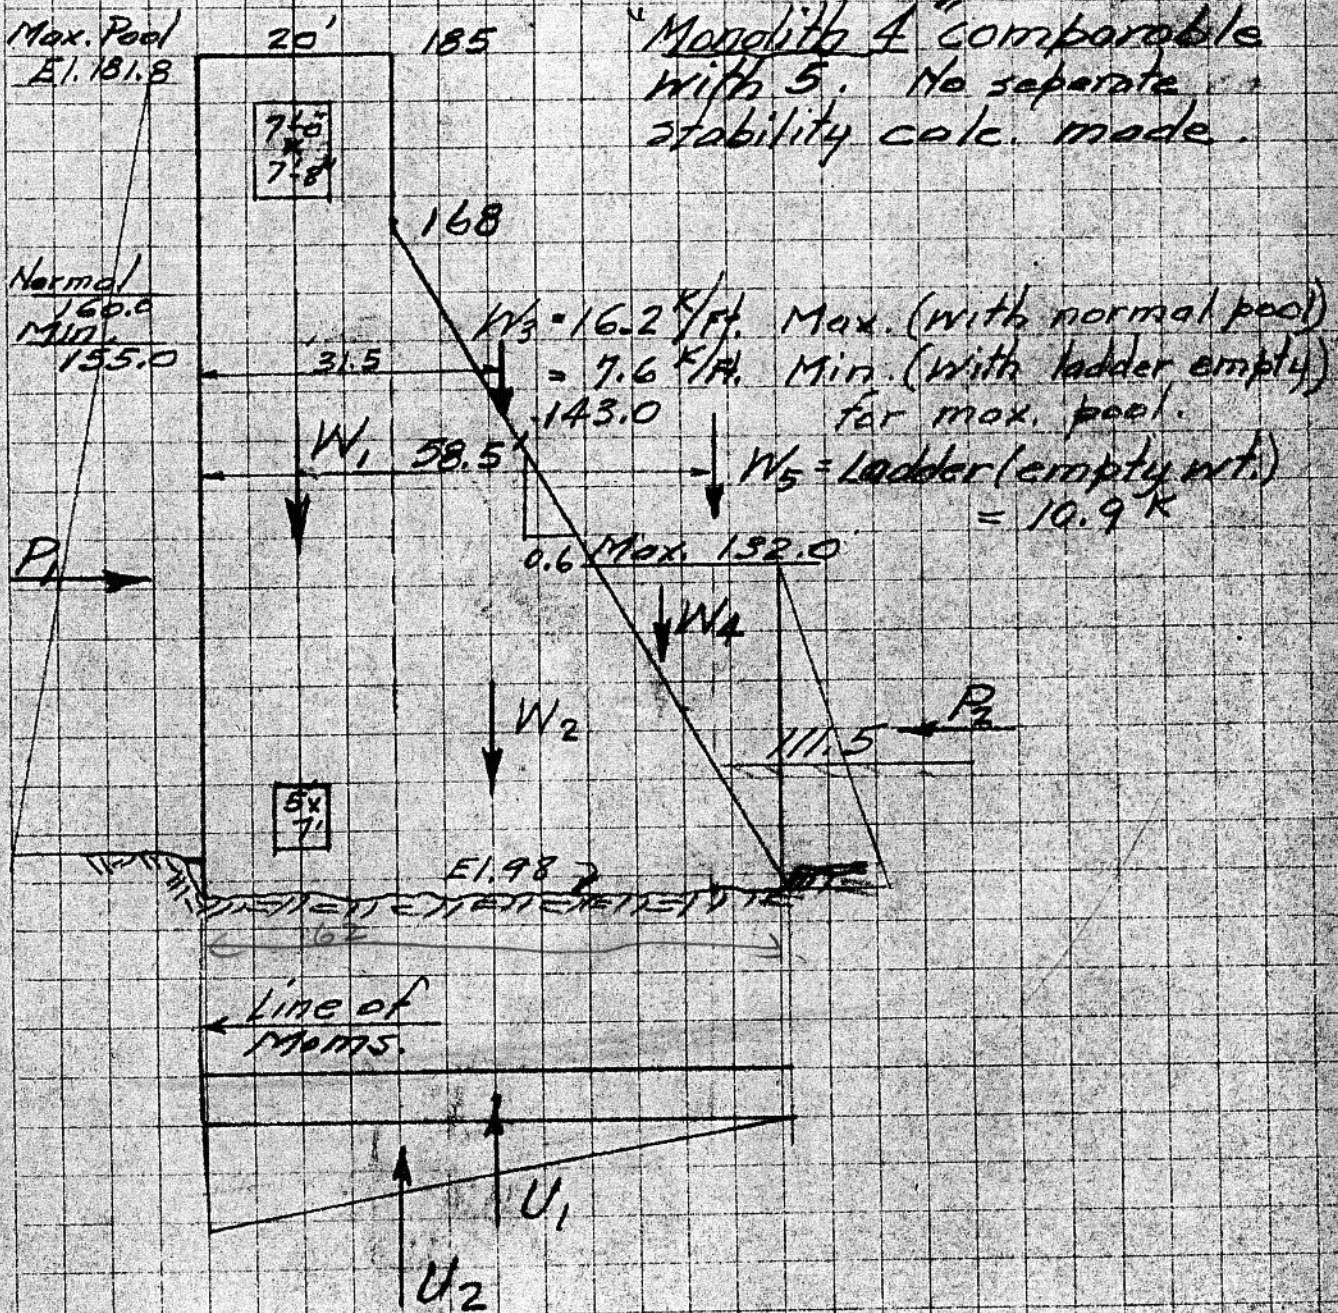 Max. Pool
El. 181.8
20'
185
"Monolith 4" comparable
with 5. No separate
stability calc. made.
7'-0"
x
7'-8"
168
Normal
160.0
Min.
155.0
W3 = 16.2 K/Ft. Max. (with normal pool)
= 7.6 K/Ft. Min. (with ladder empty)
for max. pool.
31.5
143.0
W1
58.5
W5 = Ladder (empty wt.)
= 10.9 K
P1
0.6
Max. 132.0
W4
W2
P2
111.5
5x
7'
El. 98
62
Line of
Moms.
U1
U2